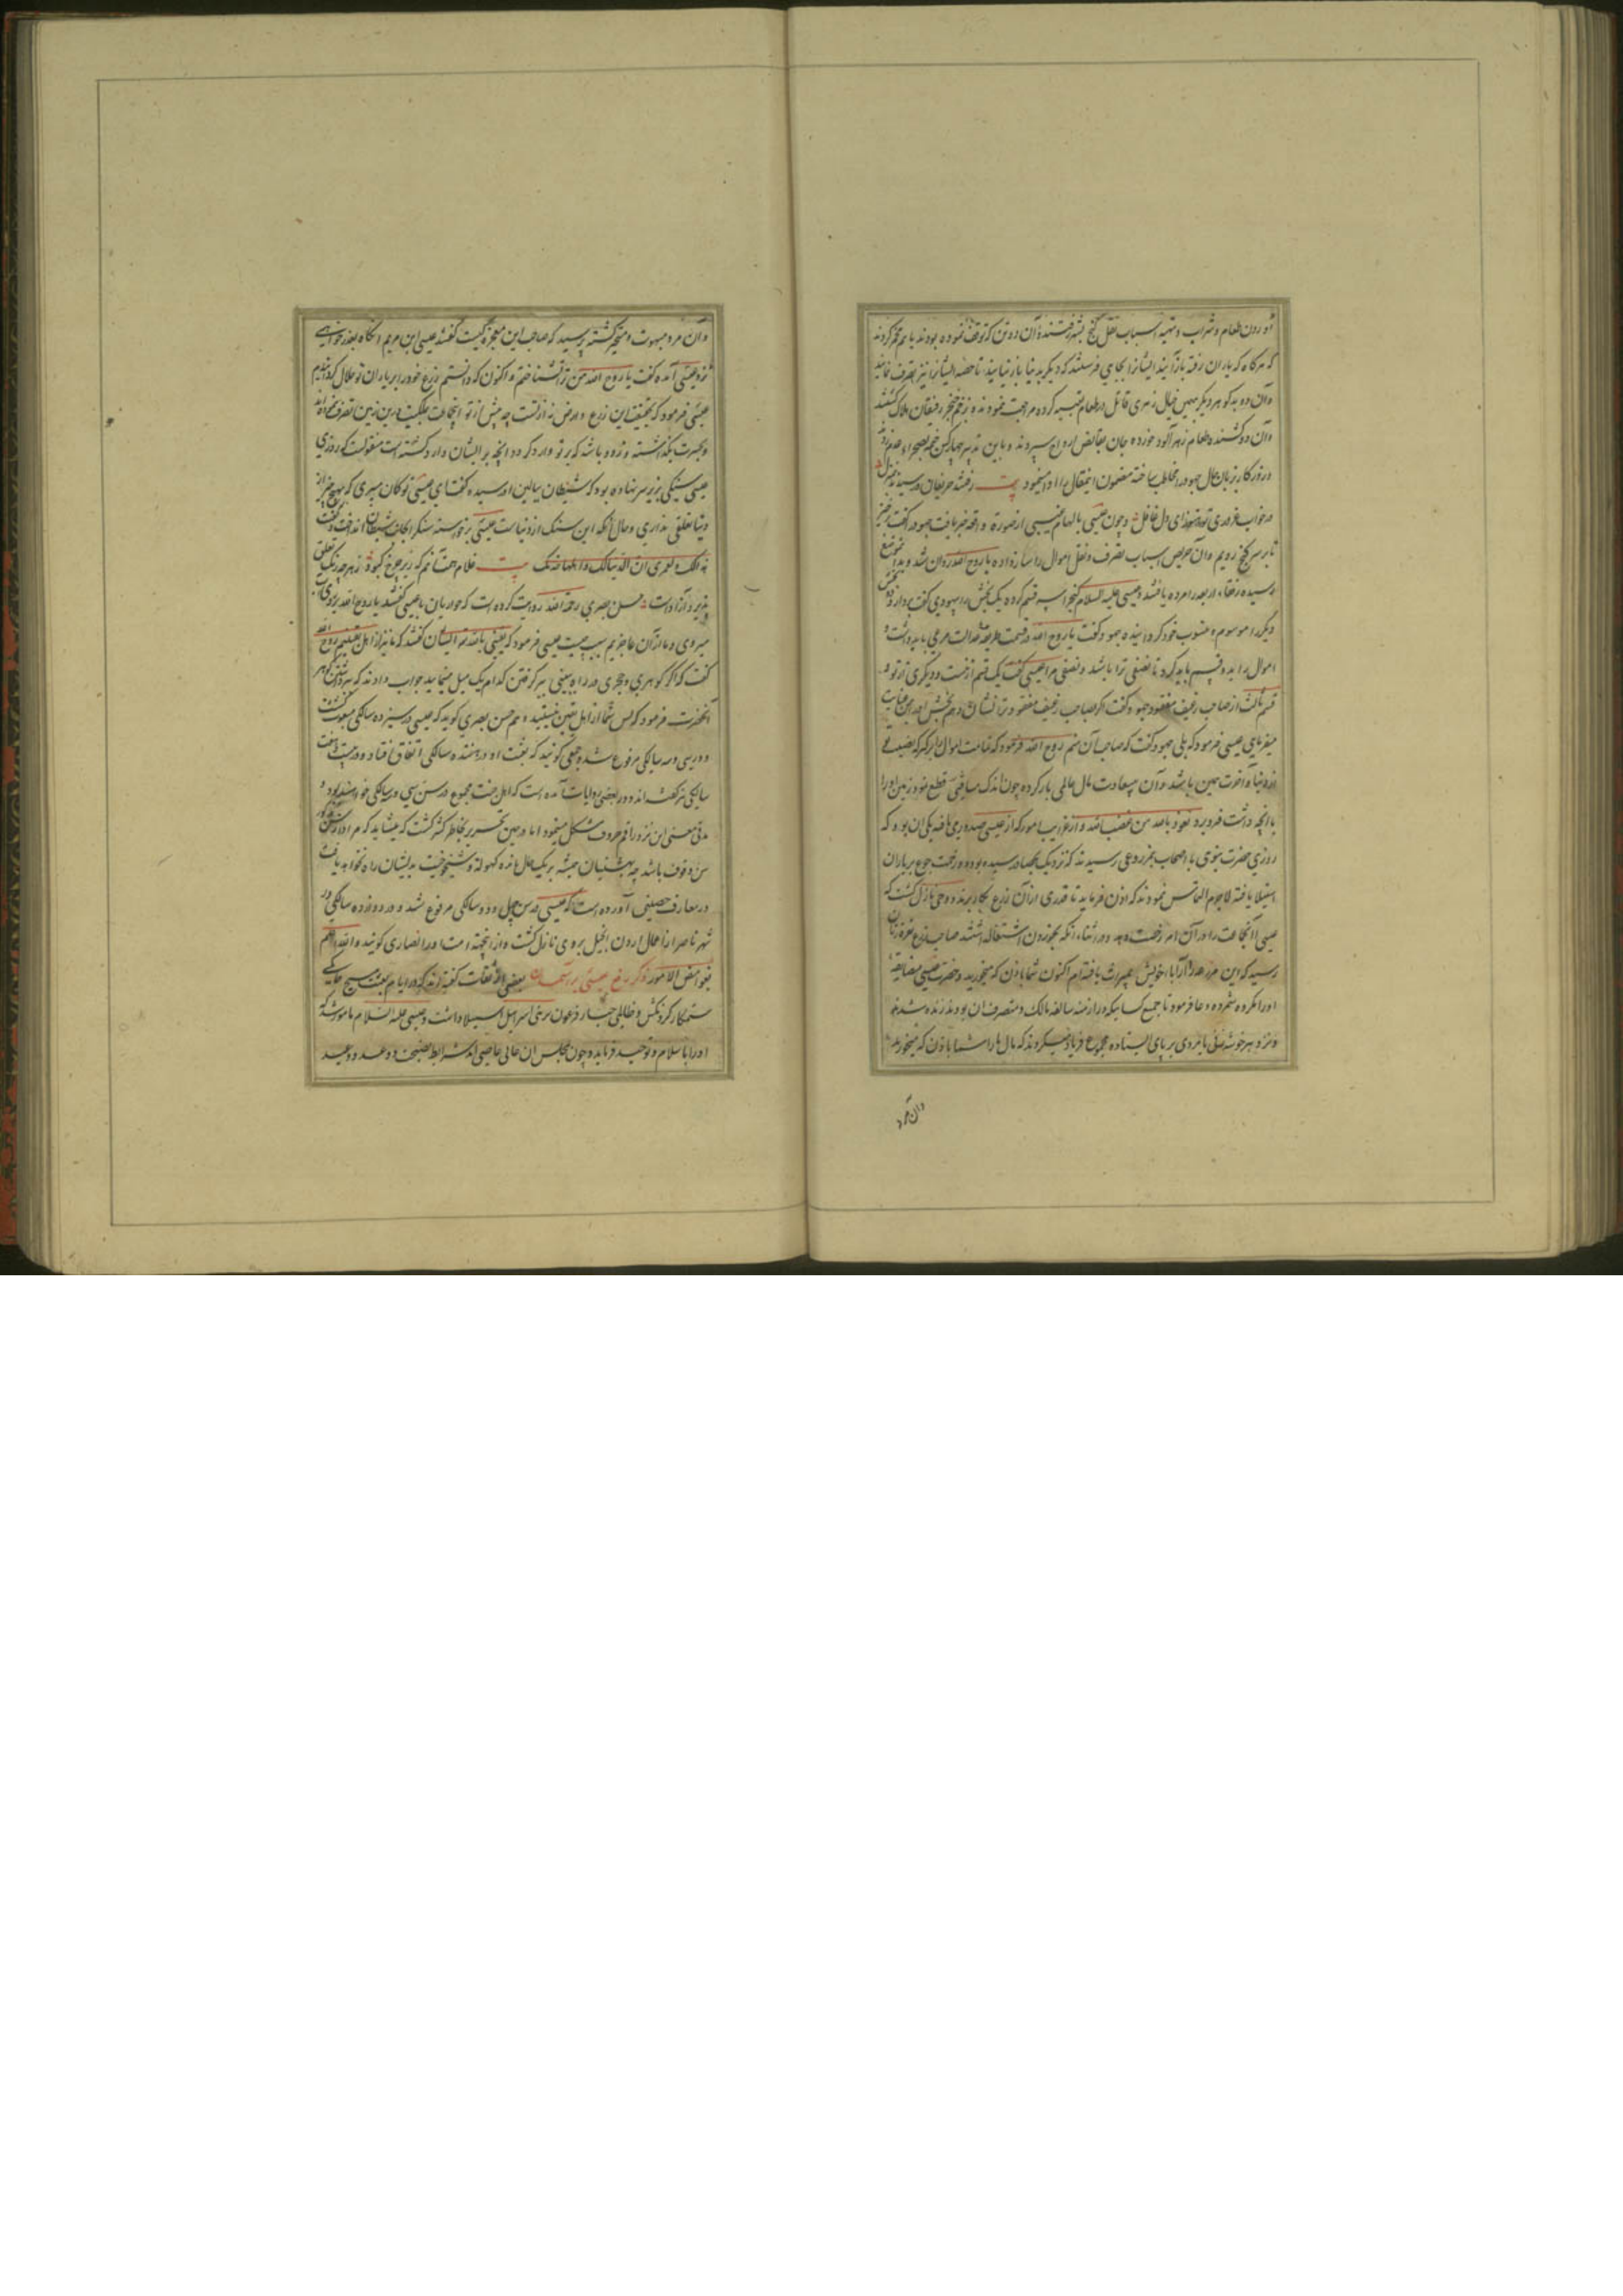 آوردن طعام و شراب و تهیه اسباب نقل گنج بشهر رفتند و آن دو تن که توقف نموده بودند با هم مخمر کردند
که هرگاه که یاران رفته بازآیند ایشانرا بجایی فرستند که دیگر بدنیا باز نیایند تا حصه ایشانرا نیز بتصرف نمایند
و آن دو بدگوهر دیگر بهمین خیال زهری قاتل در طعام تعبیه کرده مراجعت نمودند و بزخم خنجر رفیقان هلاک گشتند
و آن دو کشنده طعام زهرآلود خورده جان بقابض ارواح سپردند و باین تدبیر هر چهار کس خیمه بصحراء عدم زد
و روزگار بزبان حال یهود را مخاطب ساخته مضمون این مقال را ادا مینمود بیت رفتند حریفان و رسیدند بمنزل
در خواب غروری تو هنوز ای دل غافل و چون عیسی بالهام غیبی از صورة واقعه خبر یافت یهود را گفت برخیز
تا بر سر گنج رویم و آن حریص اسباب تصرف و نقل اموال را ساز داده با روح الله روان شد و بدان موضع
رسیده رفقاء اربعه را مرده یافتند و عیسی علیه السلام گنج را سه قسم کرده یک بخش را یهودی گفت بردار و دو بخش
دیگر را موسوم و منسوب خود گردانیده یهود گفت یا روح الله در قسمت طریقه عدالت مرعی باید داشت و
اموال را بدو قسم باید کرد تا نصفی ترا باشد و نصفی مرا عیسی گفت یک قسم از منست و دیگری از تو و
قسم ثالث از صاحب رغیف مفقود یهود گفت اگر صاحب رغیف مفقود ترا نشان دهم بخش او را بمن عنایت
میفرمایی عیسی فرمود که بلی یهود گفت که صاحب آن منم روح الله فرمود که تمامت اموال را برگیر که نصیب تو
از دنیا و آخرت همین باشد و آن بی‌سعادت مال عالمی بار کرده چون اندک مسافتی قطع نمود زمین او را
با آنچه داشت فرو برد نعوذ بالله من غضب الله و از غرایب امور که از عیسی صدور یافته یکی آن بود که
روزی حضرت نبوی با اصحاب بمزروعی رسیدند که نزدیک بحصاد رسیده بود و زحمت جوع بر یاران
استیلا یافته لاجرم التماس نمودند که اذن فرماید تا قدری از آن زرع بکار برند و وحی نازل گشت که
عیسی آنجماعت را در آن امر رخصت دهد و در اثناء آنکه بخوردن اشتغال داشتند صاحب زرع نعره زنان
رسید که این مزرعه را از آباء خویش بمیراث یافته‌ام اکنون شما باذن که میخورید و حضرت عیسی
او را مکروه شمرده دعا فرمود تا جمیع کسانیکه در ازمنه سالفه مالک و متصرف آن بودند زنده شدند
و نزد هر خوشه زنی یا مردی بر پای ایستاده مجموع فریاد میکردند که مال ما را شما باذن که میخورید
و آن مرد
و آن مرد مبهوت و متحیر گشته پرسید که صاحب این معجزه کیست گفتند عیسی ابن مریم آنگاه بعذرخواهی
نزد عیسی آمده گفت یا روح الله من ترا نشناختم و اکنون که دانستم زرع خود را بر یاران تو حلال گردانیدم
عیسی فرمود که بحقیقت این زرع و ارض نه از تست چه پیش از تو اینجماعت بملکیت درین زمین تصرف نموده‌اند
و بحسرت بگذاشته و زود باشد که بر تو وارد گردد آنچه بر ایشان وارد گشته است منقولست که روزی
عیسی سنگی بزیر سر نهاده بود که شیطان ببالین او رسیده گفت ای عیسی تو گمان میبری که بهیچ چیز از
دنیا تعلقی نداری و حال آنکه این سنگ از دنیاست عیسی برخواسته سنگ را بجانب شیطان انداخت و گفت
هذا لک و لعمری ان الدنیا لک و اهلها لک بیت غلام همت آنم که زیر چرخ کبود ز هر چه رنگ تعلق
پذیرد آزادست حسن بصری رحمه الله روایت کرده است که حواریان با عیسی گفتند یا روح الله بروی آب
میروی و ما از آن عاجزیم سبب چیست عیسی فرمود که یقینی بالله تع ایشان گفتند که ما نیز از اهل یقینیم روح الله
گفت که اگر گوهری و حجری در راه ببینی ببرگرفتن کدام یک میل مینمایید جواب دادند که ببرداشتن گوهر
آنحضرت فرمود که پس شما از اهل یقین نیستید و هم حسن بصری گوید که عیسی در سیزده سالگی مبعوث گشت
و در سی و سه سالگی مرفوع شد و جمعی گویند که بعثت او در هفده سالگی اتفاق افتاد
سالگی نیز گفته‌اند و در بعضی روایات آمده است که اهل جنت مجموع در سن سی و سه سالگی خواهند بود و
مدتی معنی این نزد راقم حروف مشکل مینمود اما در حین تحریر بخاطر گذر گشت که میشاید که مراد از سن مذکور
سن وقوف باشد چه بهشتیان همیشه بر یک حال مانده کهولة و شیخوخیت بدیشان راه نخواهد یافت
در معارف حصینی آورده است که عیسی در سن چهل و دو سالگی مرفوع شد و در دوازده سالگی در
شهر ناصرا از اعمال اردن انجیل بروی نازل گشت و ازینجهة امت او را نصاری گویند و الله اعلم
بغوامض الامور ذکر رفع عیسی بر آسمان بعضی از ثقات گفته‌اند که در ایام بعثت مسیح حاکمی
ستمکار گردنکش و ظالمی جبار فرعون‌وش بر بنی اسرائیل استیلا داشت و عیسی علیه السلام مامور شد که
او را باسلام و توحید فرماید و چون بمجلس آن عاتی عاصی آمد شرایط نصیحت و وعد و وعید